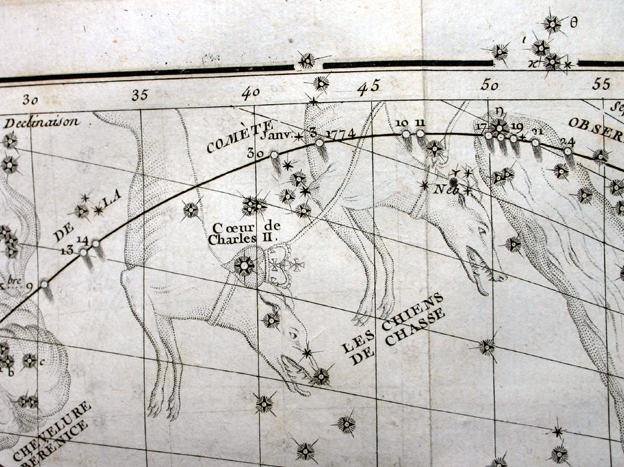 θ
ι
κ
30 35 40 45 50 55
Declinaison
COMÈTE
DE LA
OBSER
Janv.
30
3
1774
10 11
17
η
19
21
24
Neb
Cœur de
Charles II.
13 14
bre 9
LES CHIENS
DE CHASSE
b
c
CHEVELURE
BERENICE